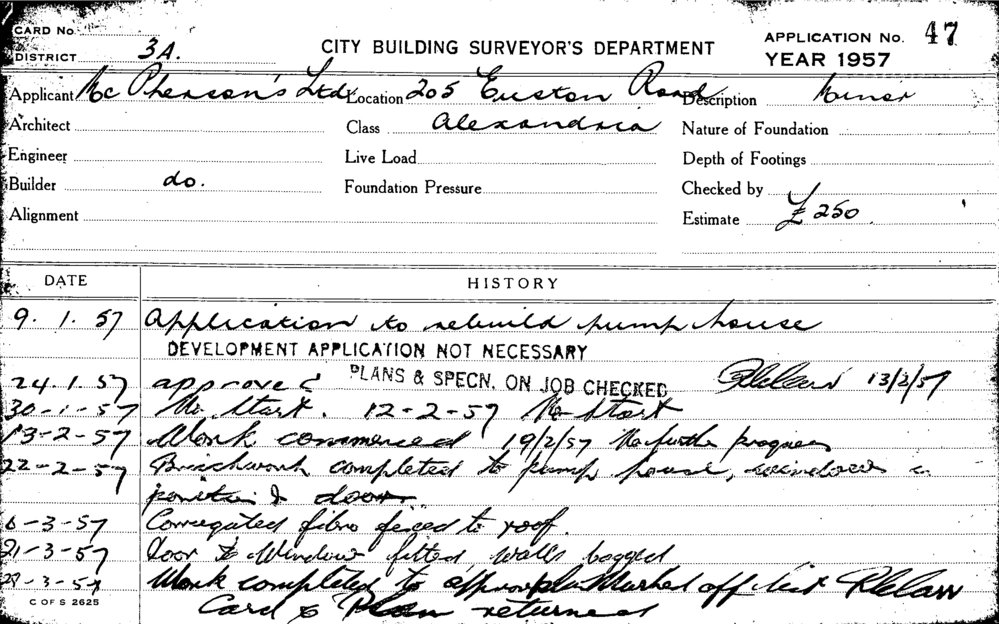 CARD No.
DISTRICT 3A.
CITY BUILDING SURVEYOR'S DEPARTMENT
APPLICATION No. 47
YEAR 1957
Applicant Mc Pherson's Ltd Location 205 Euston Road Description Minor
Architect Class Alexandria Nature of Foundation
Engineer Live Load Depth of Footings
Builder do. Foundation Pressure Checked by
Alignment Estimate £250.
DATE HISTORY
9. 1. 57 Application to rebuild pump house
DEVELOPMENT APPLICATION NOT NECESSARY
24.1.57 approved PLANS & SPECN. ON JOB CHECKED 13/2/57
30-1-57 No Start. 12-2-57 No Start
13-2-57 Work commenced 19/2/57 No further progress
22-2-57 Brickwork completed to pump house, windows in
position & door
6-3-57 Corrugated fibro fixed to roof.
21-3-57 Door & Window fitted, walls bagged
Work completed to approv plan Marked off list
C OF S 2625
Card & Plan returned